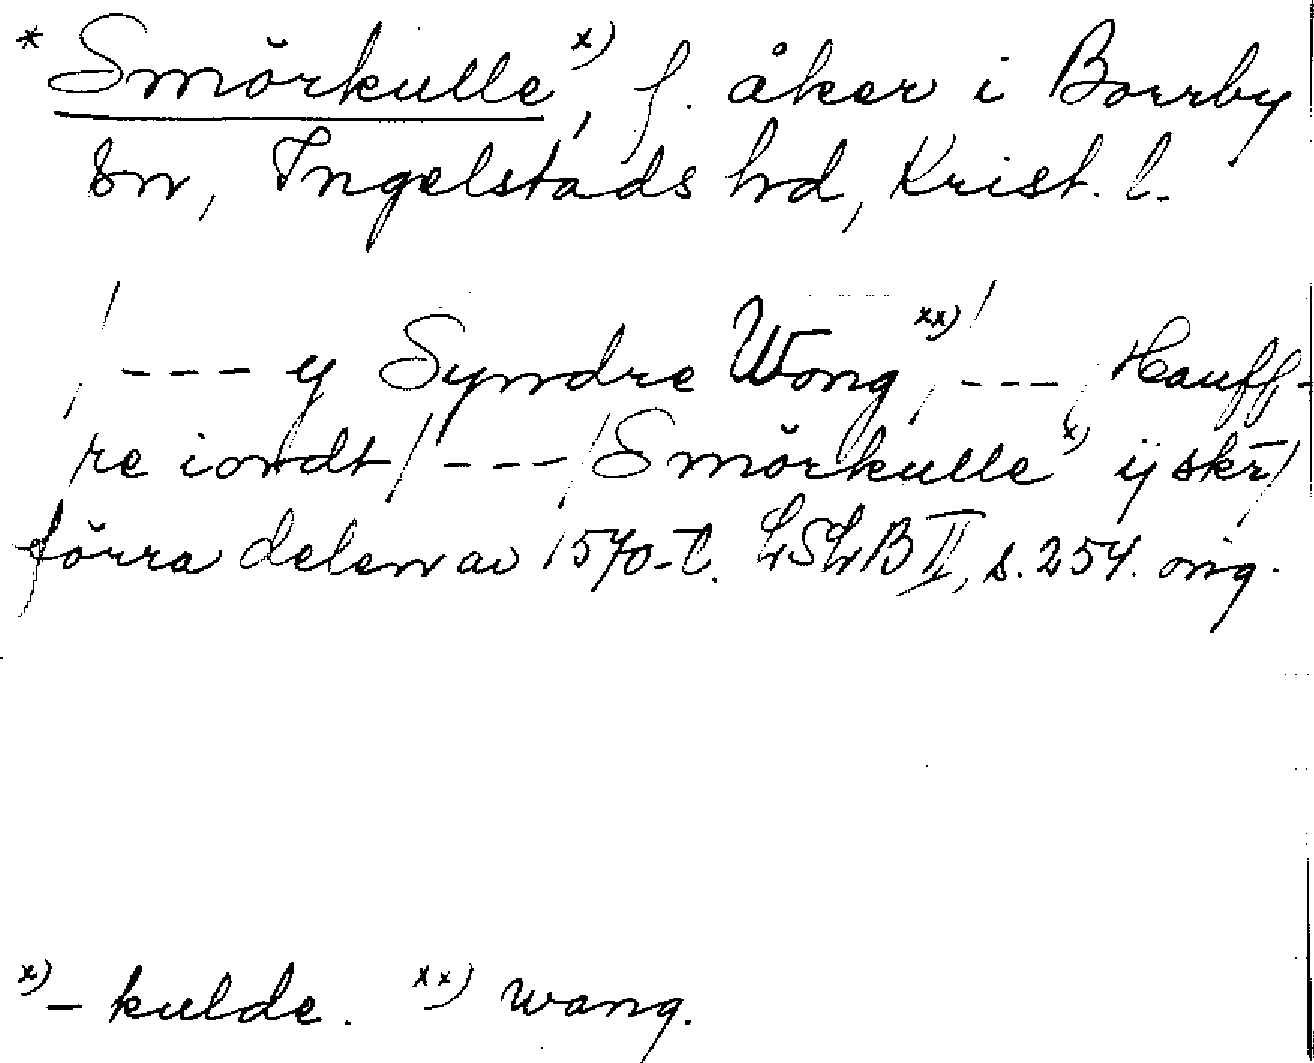 * Smörkulle x), f. åker i Borrby
sn, Ingelstads hrd, Krist. l.
/ --- y Syndre Wong xx) / --- / Hauff-
re iordt / --- / Smörkulle x) ij skr̄ /
förra delen av 1570-t. LSLB II, s. 254. orig.
x) - kulde. xx) wang.